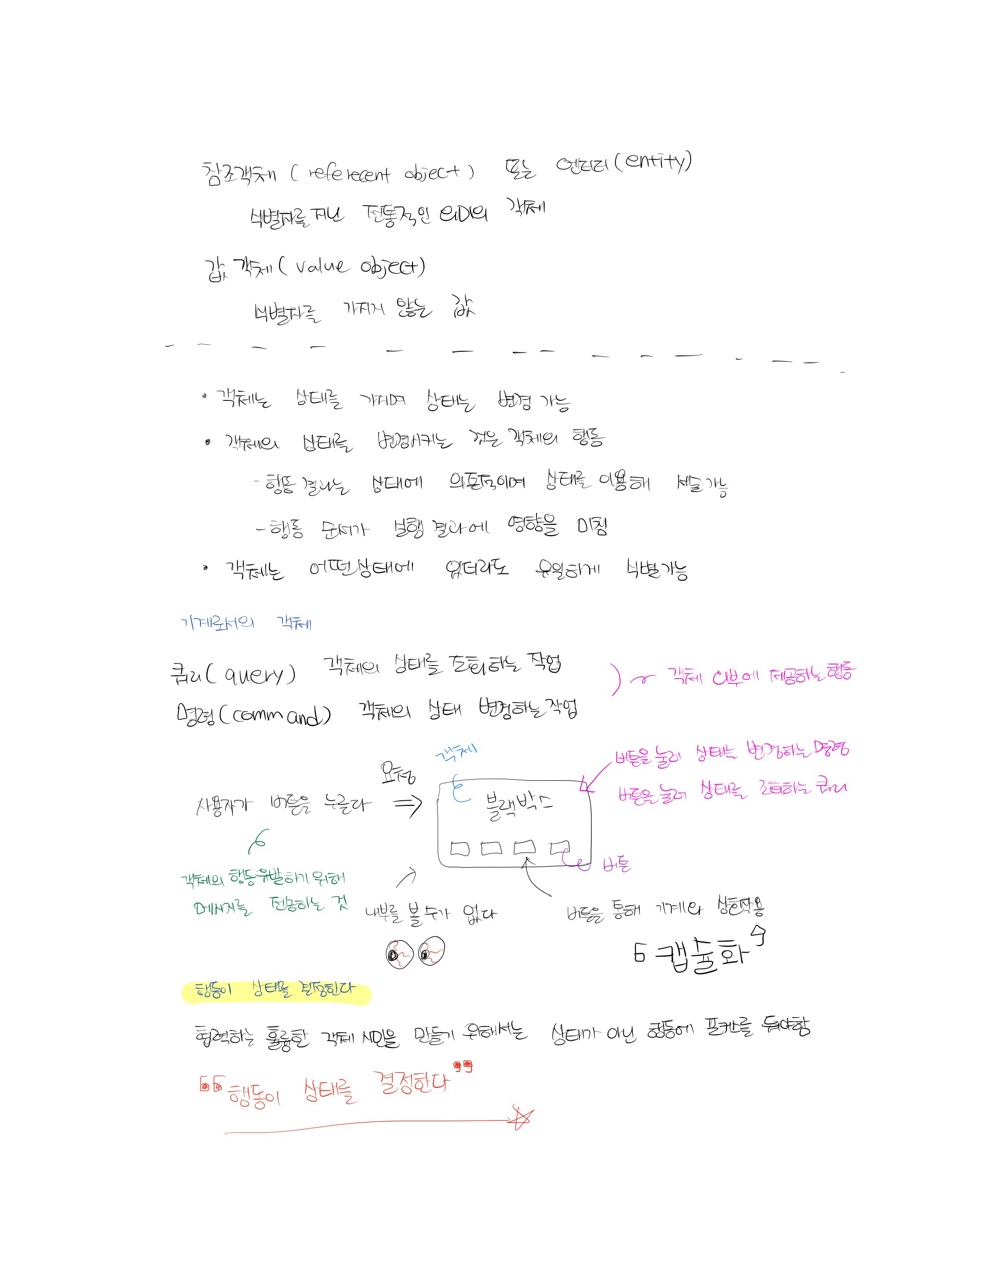 참조객체 ( referecent object ) 또는 엔터티(entity)
식별자를 지닌 전통적인 의미의 객체
값 객체 ( value object)
식별자를 가지지 않는 값
• 객체는 상태를 가지며 상태는 변경 가능
• 객체의 상태를 변경시키는 것은 객체의 행동
- 행동 결과는 상태에 의존적이며 상태를 이용해 서술 가능
- 행동 순서가 실행 결과에 영향을 미침
• 객체는 어떤상태에 있더라도 유일하게 식별가능
기계로서의 객체
쿼리( query) 객체의 상태를 조회하는 작업
명령(command) 객체의 상태 변경하는 작업
) ~ 객체 외부에 제공하는 행동
객체
요청
버튼을 눌러 상태를 변경하는 명령
버튼을 눌러 상태를 조회하는 쿼리
사용자가 버튼을 누른다 ⇒
블랙박스
버튼
객체의 행동 유발하기 위해
메시지를 전송하는 것
내부를 볼 수가 없다
버튼을 통해 기계와 상호작용
캡슐화
행동이 상태를 결정한다
협력하는 훌륭한 객체 시민을 만들기 위해서는 상태가 아닌 행동에 포커스를 둬야함
“ 행동이 상태를 결정한다 ”